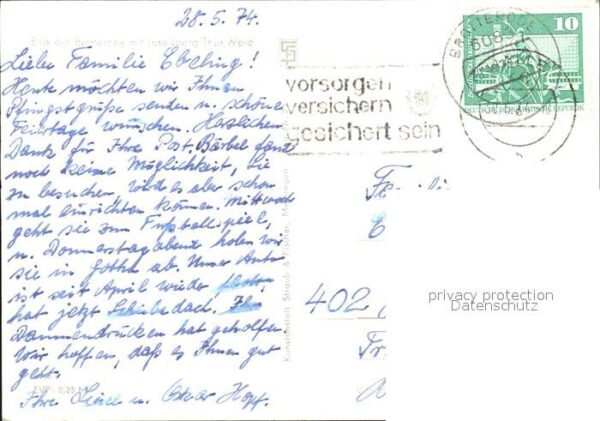 28.5.74.
Blick auf Brotterode mit Inselsberg Thür. Wald
Liebe Familie Ebeling!
Heute möchten wir Ihnen
Pfingstgrüße senden u. schöne
Feiertage wünschen. Herzlichen
Dank für Ihre Post. Bärbel fand
noch keine Möglichkeit, Sie
zu besuchen, wird es aber schon
mal einrichten können. Mittwoch
geht sie zum Fußballspiel,
u. Donnerstagabend holen wir
sie in Gotha ab. Unser Auto
ist seit April wieder
hat jetzt Schiebedach.
Daumendrücken hat geholfen
Wir hoffen, daß es Ihnen gut
geht.
Ihre Liesel u. Oskar Hopf.
EVP: 0,25 M
Kunstanstalt Straub & Fischer, Meiningen
vorsorgen
versichern
gesichert sein
608
10
DDR
402
privacy protection
Datenschutz